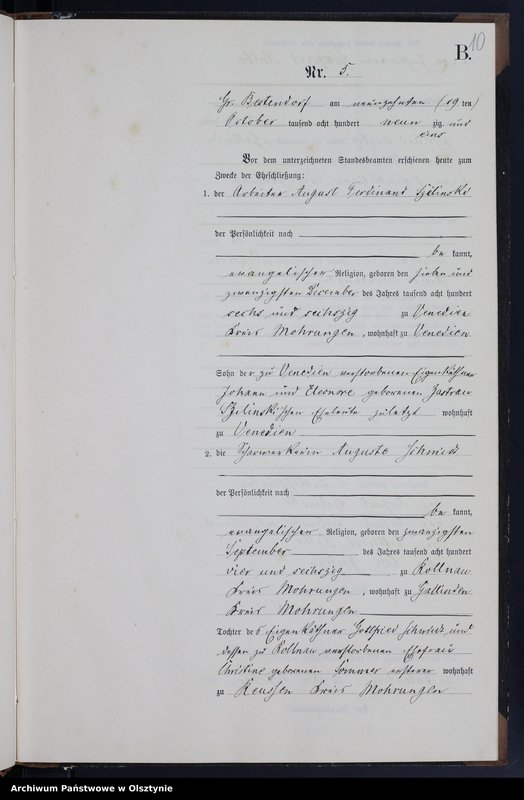 10
B.
Nr. 5.
Gr. Bestendorf am neunzehnten (19 ten)
October tausend acht hundert neun zig und
eins
Vor dem unterzeichneten Standesbeamten erschienen heute zum
Zwecke der Eheschließung:
1. der Arbeiter August Ferdinand
der Persönlichkeit nach
be kannt,
evangelischer Religion, geboren den sieben und
zwanzigsten December des Jahres tausend acht hundert
sechs und sechszig zu Venedien
Kreis Mohrungen, wohnhaft zu Venedien
Sohn der zu Venedien verstorbenen Eigenkäthner
Johann und Eleonore geborenen Zastrau
Eheleute zuletzt wohnhaft
zu Venedien
2. die Auguste Schmidt
der Persönlichkeit nach
be kannt,
evangelischer Religion, geboren den zwanzigsten
September des Jahres tausend acht hundert
vier und sechszig zu Kollnau
Kreis Mohrungen, wohnhaft zu Gallinden
Kreis Mohrungen
Tochter des Eigenkäthner Gottfried Schmidt und
dessen zu Kollnau verstorbenen Ehefrau
Christine geborenen Sommer ersterer wohnhaft
zu Reussen Kreis Mohrungen
Archiwum Państwowe w Olsztynie